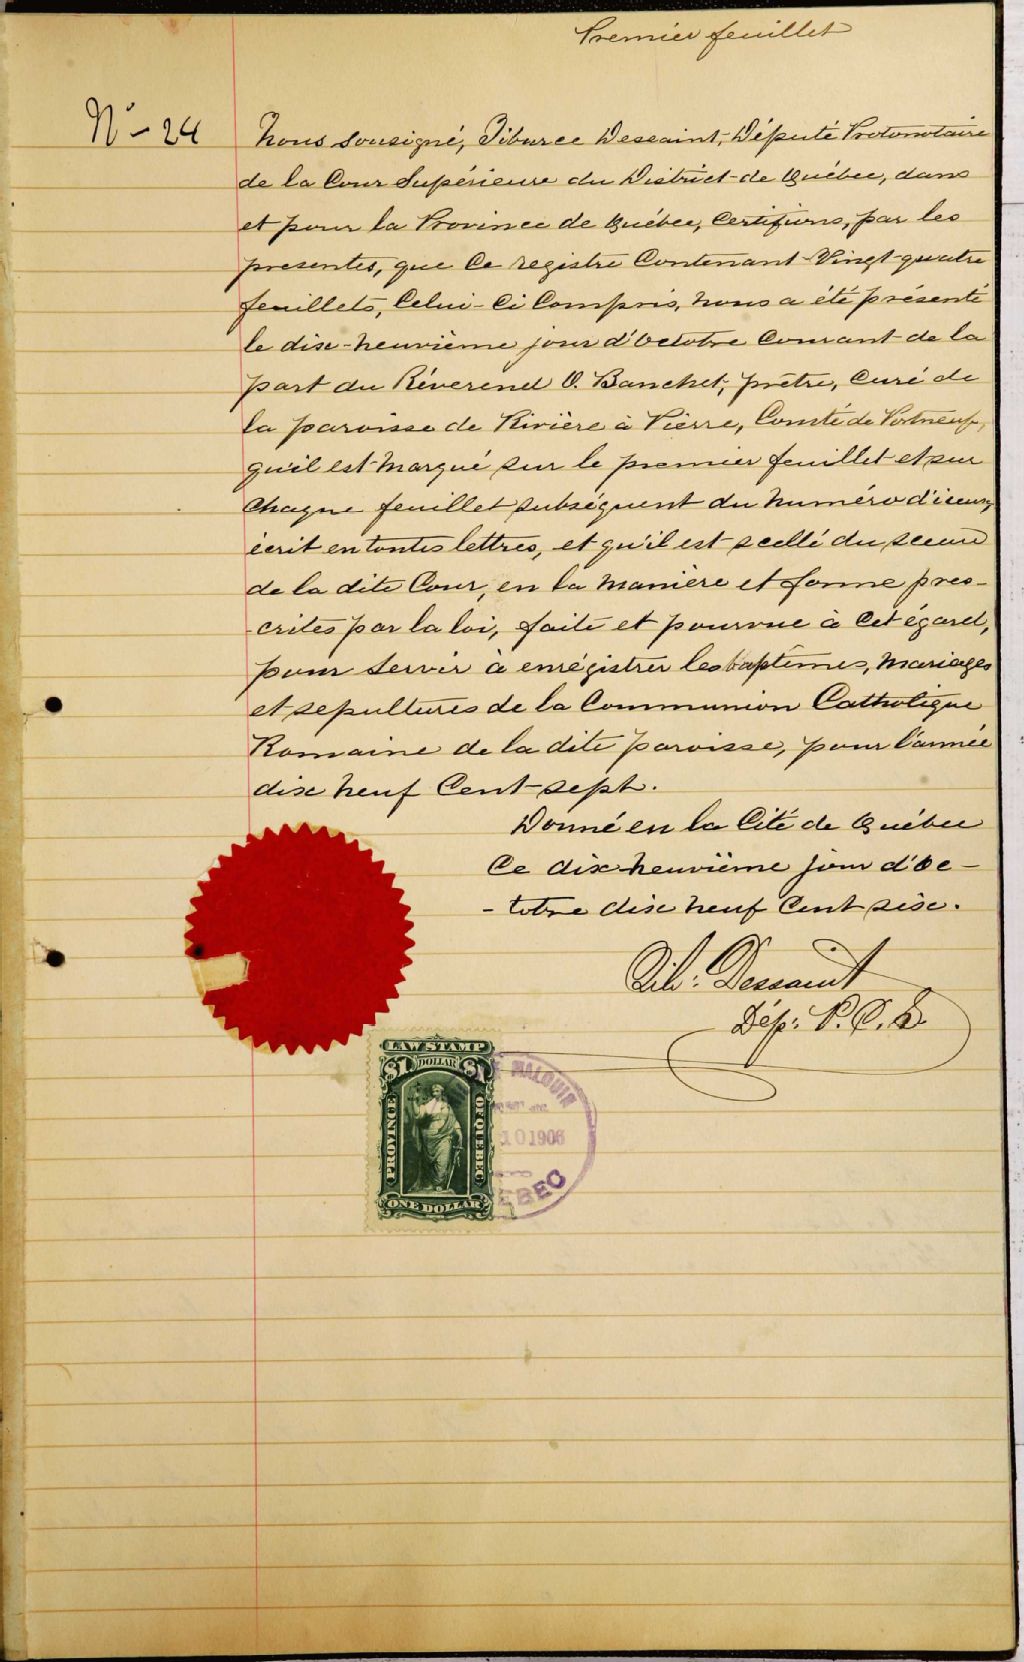 Premier feuillet
No - 24
Nous sousigné, Tiburce Dessaint, Député Protonotaire
de la Cour Supérieure du District de Québec, dans
et pour la Province de Québec, Certifions, par les
presentes, que Ce registre Contenant Vingt-quatre
feuillets, Celui-Ci Compris, nous a été présenté
le dix-neuvième jour d'Octobre Courant de la
part du Révérend O. Banchet, prêtre, Curé de
la paroisse de Rivière à Pierre, Comté de Portneuf,
qu'il est marqué sur le premier feuillet et sur
Chaque feuillet subséquent du numéro d'iceux,
écrit en toutes lettres, et qu'il est scellé du sceau
de la dite Cour, en la manière et forme pres-
-crites par la loi, faite et pourvue à Cet égard,
pour servir à enrégistrer les baptêmes, mariages
et sepultures de la Communion Catholique
Romaine de la dite paroisse, pour l'année
dix neuf Cent-sept.
Donné en la Cité de Québec
Ce dix-neuvième jour d'Oc-
-tobre dix neuf Cent six.
Tib: Dessaint
Dép: P.C.S
LAW STAMP
$1 DOLLAR $1
PROVINCE OF QUEBEC
ONE DOLLAR
MALOUIN
10 1906
EBEC